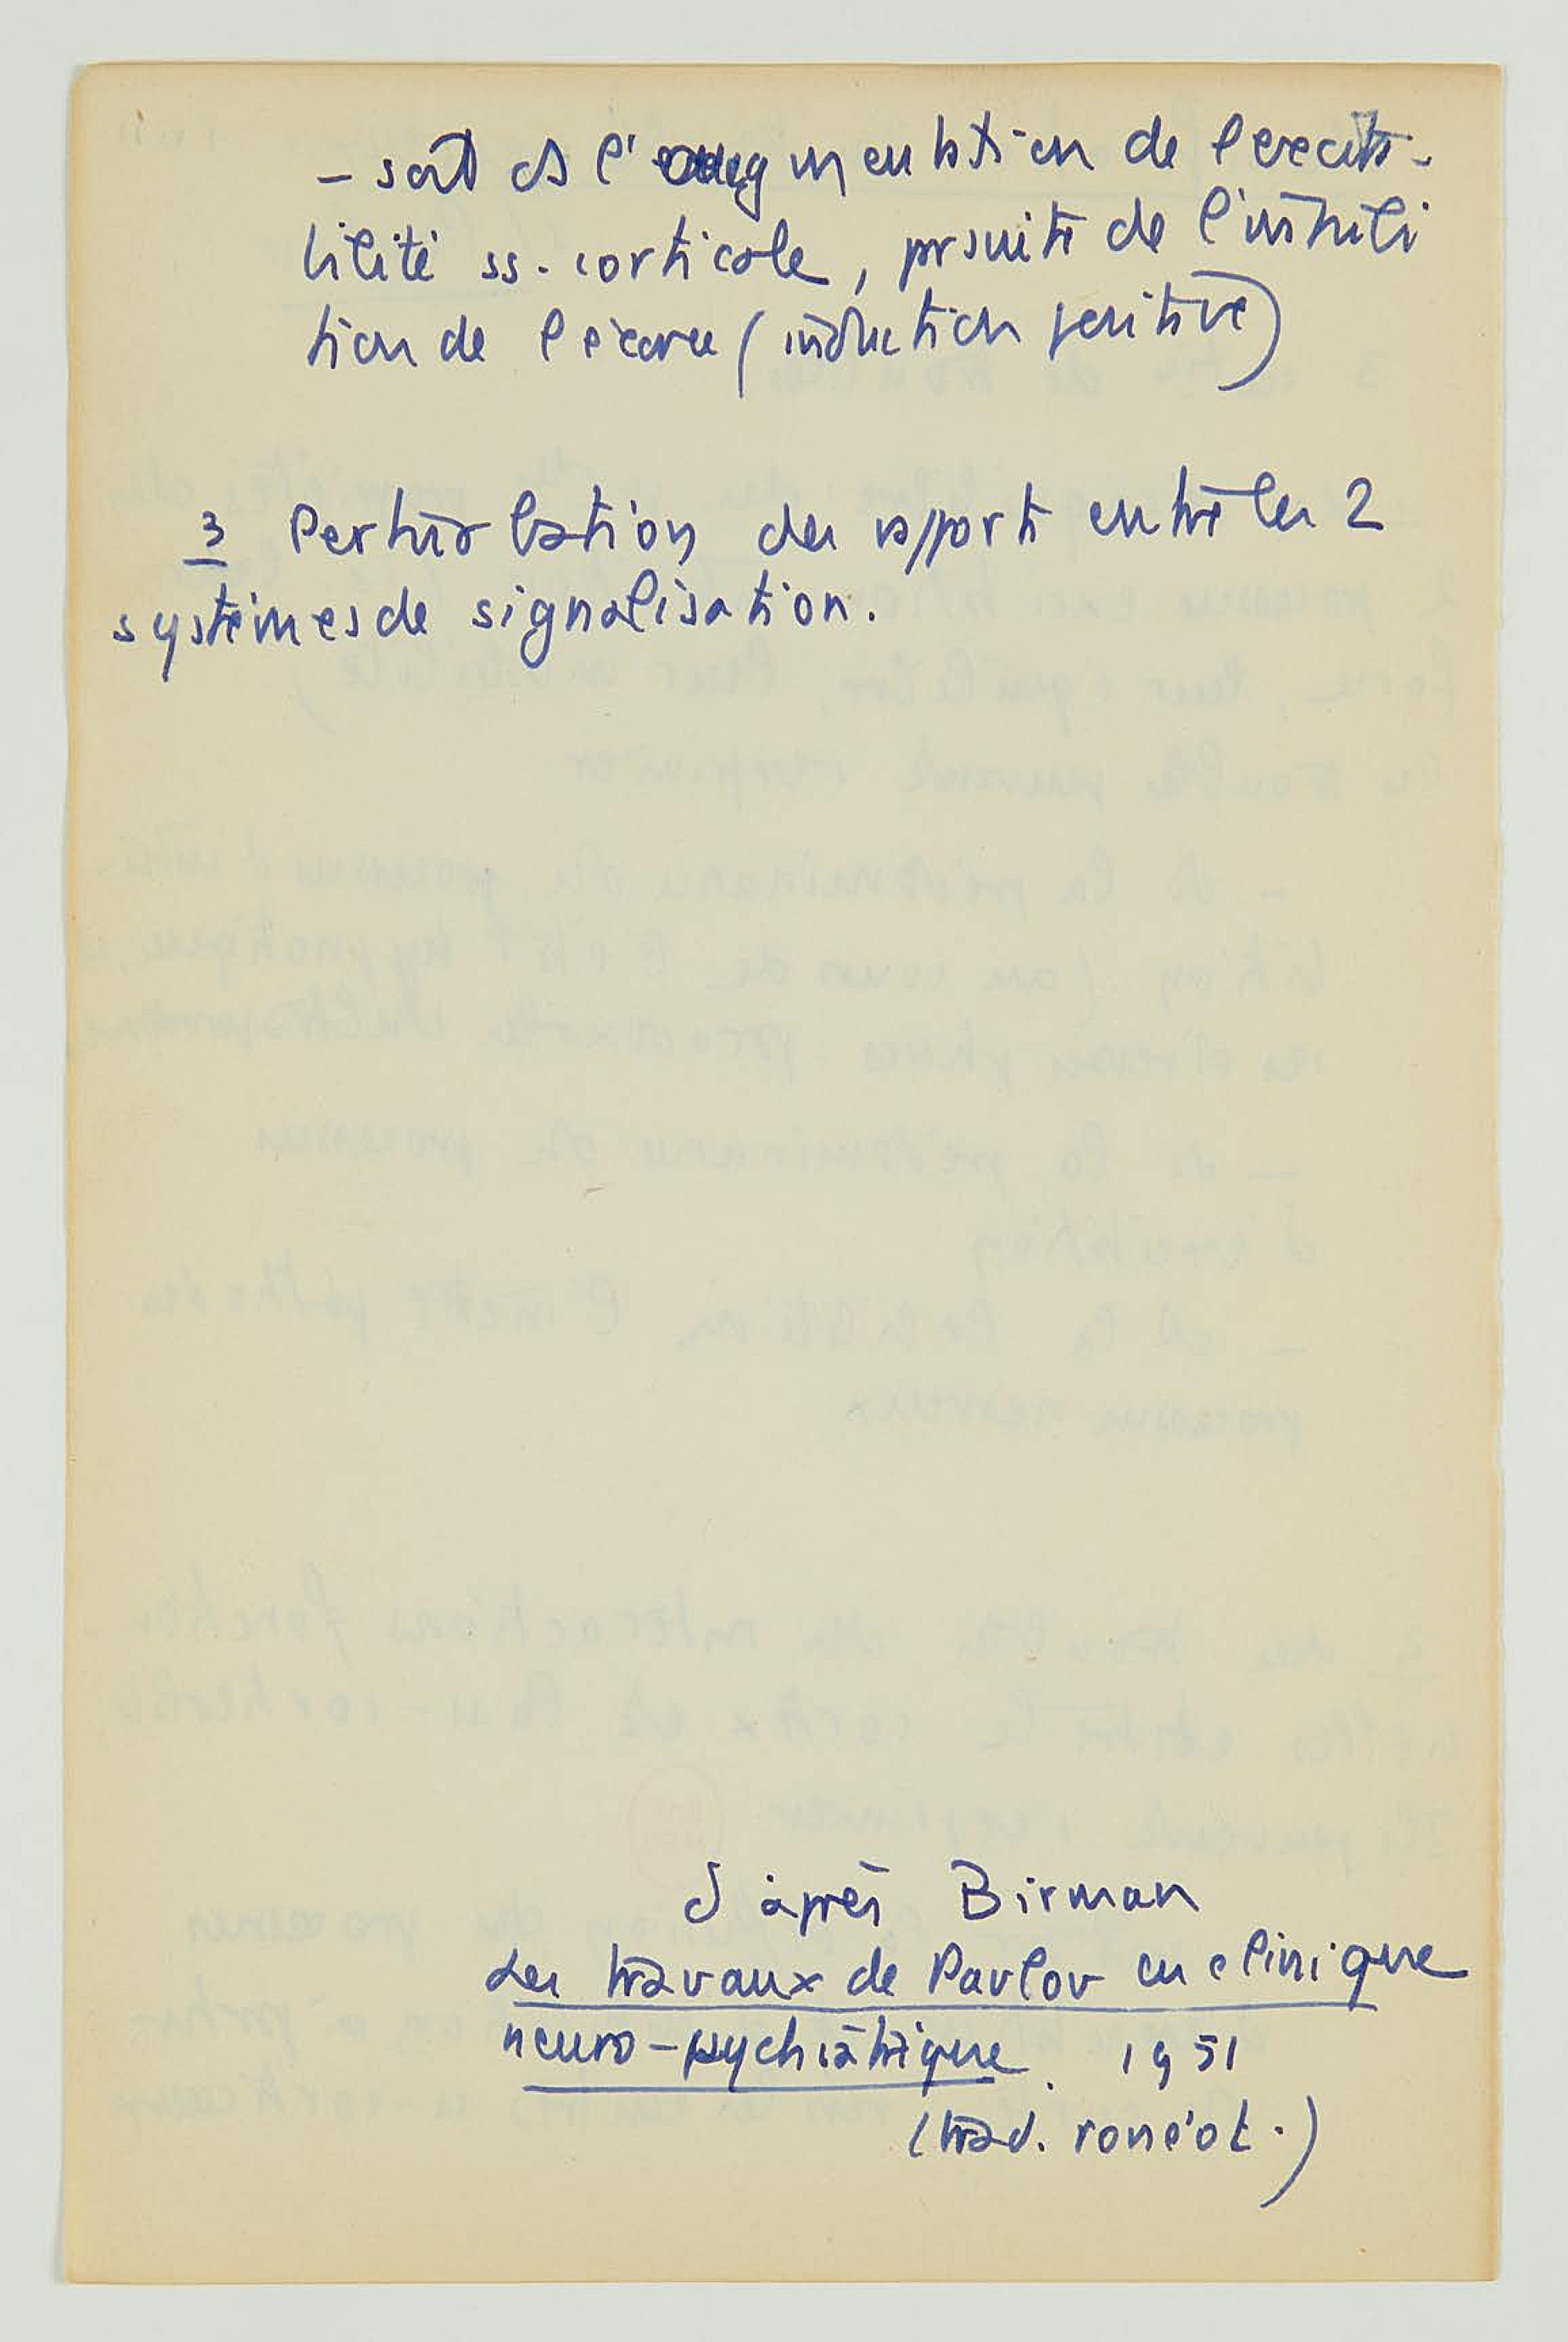 – soit ds l'augmentation de l'excita-
bilité ss-corticale, par suite de l'inhibi
tion de l'écorce (induction positive)
3 Perturbation des rapports entre les 2
systèmes de signalisation.
d'après Birman
Les travaux de Pavlov en clinique
neuro-psychiatrique. 1951
(trad. ronéot.)